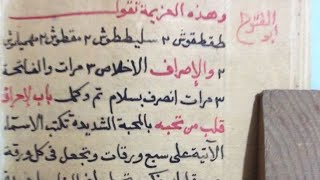 وهذه العزيمة تقول
طقطقوش ٢ سليططوش ٢ مقطوش ٢ مهياوش
٢ والإصراف الإخلاص ٣ مرات والفاتحة
٣ مرات انصرف بسلام تم وكمل باب لإحراق
قلب من تحبه بالمحبة الشديدة تكتب الاسماء
الآتية على سبع ورقات وتجعل في كل ورقة
أبو
الفتوح